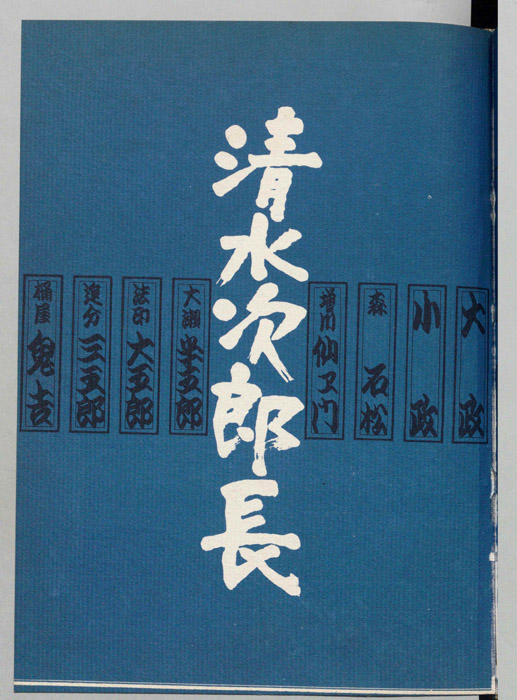 大政
小政
森 石松
増川 仙ヱ門
清水次郎長
大瀬 半五郎
法印 大五郎
追分 三五郎
桶屋 鬼吉